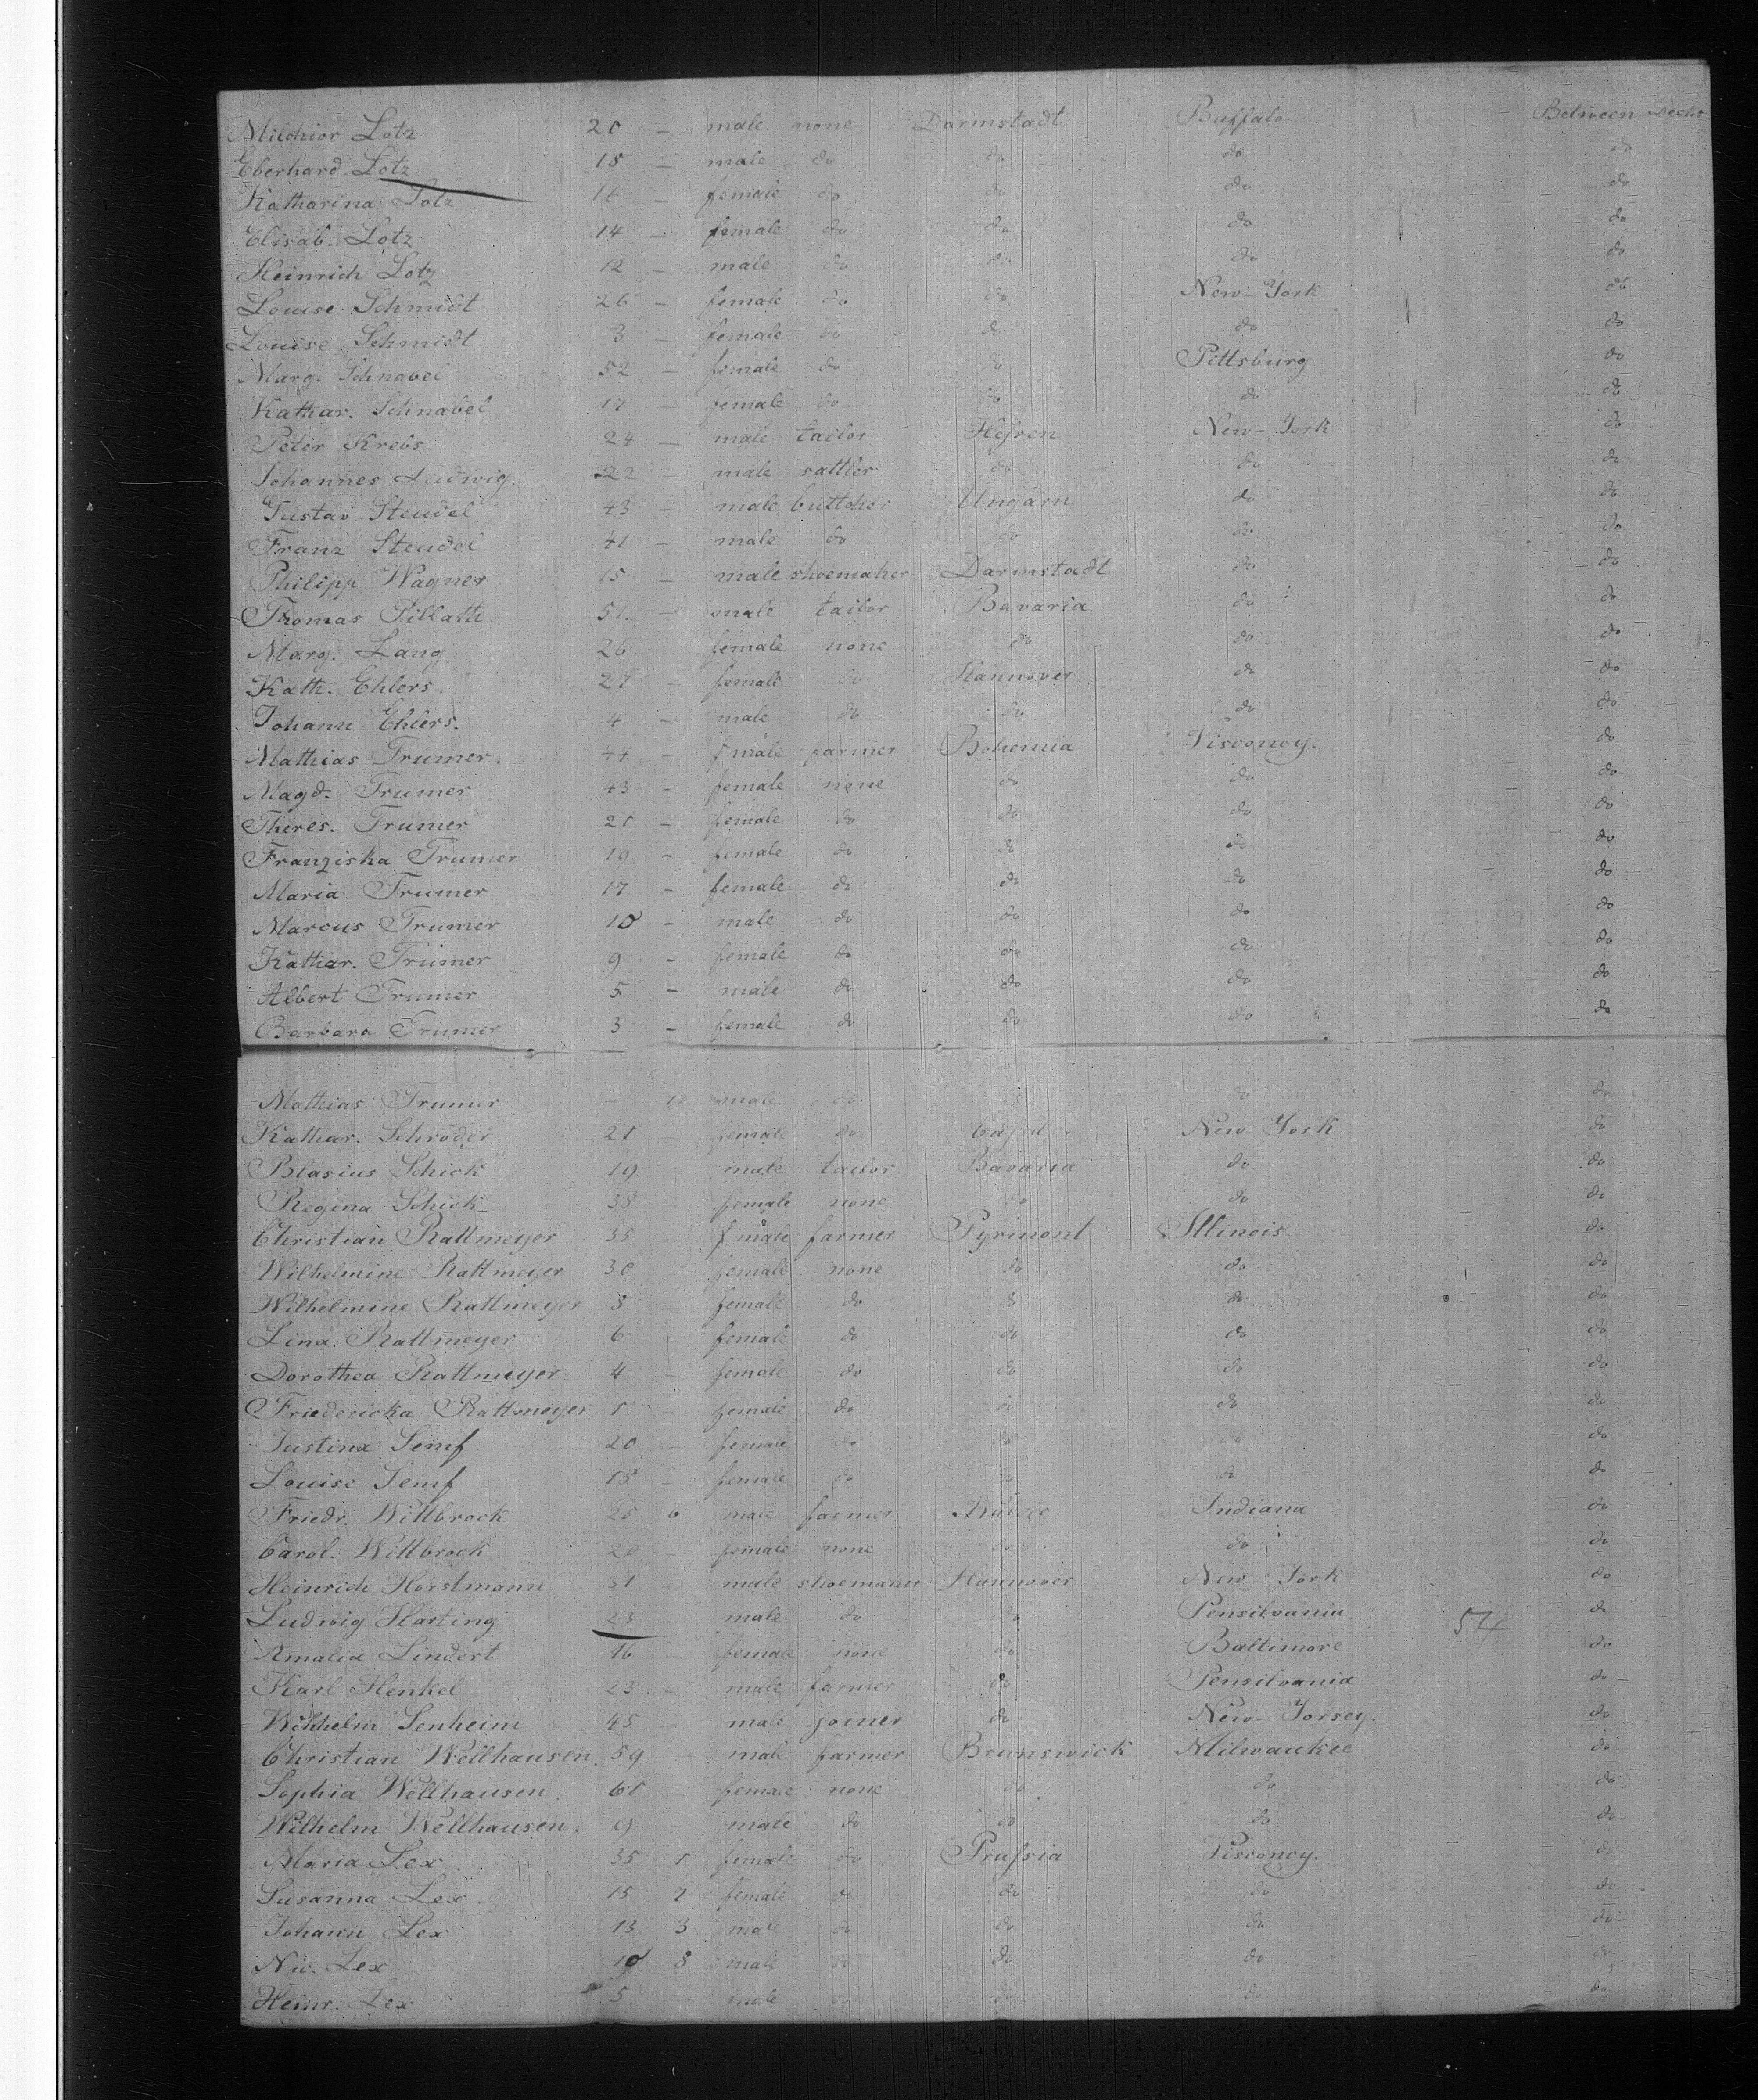 Milchior Lotz 20 - male none Darmstadt Buffalo Between Decks
Eberhard Lotz 15 - male do do do do
Katharina Lotz 16 - female do do do do
Elisab. Lotz 14 - female do do do do
Heinrich Lotz 12 - male do do do do
Louise Schmidt 26 - female do do New-York do
Louise Schmidt 3 - female do do do do
Marg. Schnabel 52 - female do do Pittsburg do
Kathar. Schnabel 17 - female do do do do
Peter Krebs 24 - male tailor Hessen New-York do
Johannes Ludwig 22 - male sattler do do do
Gustav Steudel 43 - male buttcher Ungarn do do
Franz Steudel 41 - male do do do do
Philipp Wagner 15 - male shoemaker Darmstadt do do
Thomas Pillath 51. - male tailor Bavaria do do
Marg. Lang 26 female none do do do
Kath. Ehlers. 27 - female do Hannover do do
Johann Ehlers. 4 - male do do do do
Mathias Trumer. 44 - male farmer Bohemia Visconcy. do
Magd. Trumer 43 - female none do do do
Theres. Trumer 21 - female do do do do
Franziska Trumer 19 - female do do do do
Maria Trumer 17 - female do do do do
Marcus Trumer 10 - male do do do do
Kathar. Trumer 9 - female do do do do
Albert Trumer 5 - male do do do do
Barbara Trumer 3 - female do do do do
Mathias Trumer - male do do do do
Kathar. Schröder 21 - female do Cassel New York do
Blasius Schick 19 male tailor Bavaria do do
Regina Schick 35 female none do do do
Christian Rattmeyer 35 male farmer Pyrmont Illinois do
Wilhelmine Rattmeyer 30 female none do do do
Wilhelmine Rattmeyer 8 female do do do do
Lina Rattmeyer 6 female do do do do
Dorothea Rattmeyer 4 - female do do do do
Friedericka Rattmeyer 1 female do do do do
Justina Semf 20 - female do do do do
Louise Semf 18 - female do do do do
Friedr. Wittbrock 25 6 male farmer Indiana do
Carol. Wittbrock 20 - female none do do do
Heinrich Horstmann 31 - male shoemaker Hannover New York do
Ludwig Harting 23 male do do Pensilvania 54 do
Amalia Lindert 16 - female none do Baltimore do
Karl Henkel 23. - male farmer do Pensilvania do
Wilhelm Senheim 45 male joiner do New-Jorsey. do
Christian Wellhausen. 59 - male farmer Brunswick Milwaukee do
Sophia Wellhausen. 61 - female none do do do
Wilhelm Wellhausen. 9 male do do do do
Maria Lex. 35 1 female do Prussia Visconcy. do
Susanna Lex. 15 7 female do do do do
Johann Lex 13 3 male do do do do
Nic. Lex 10 8 male do do do do
Heinr. Lex 5 - male do do do do